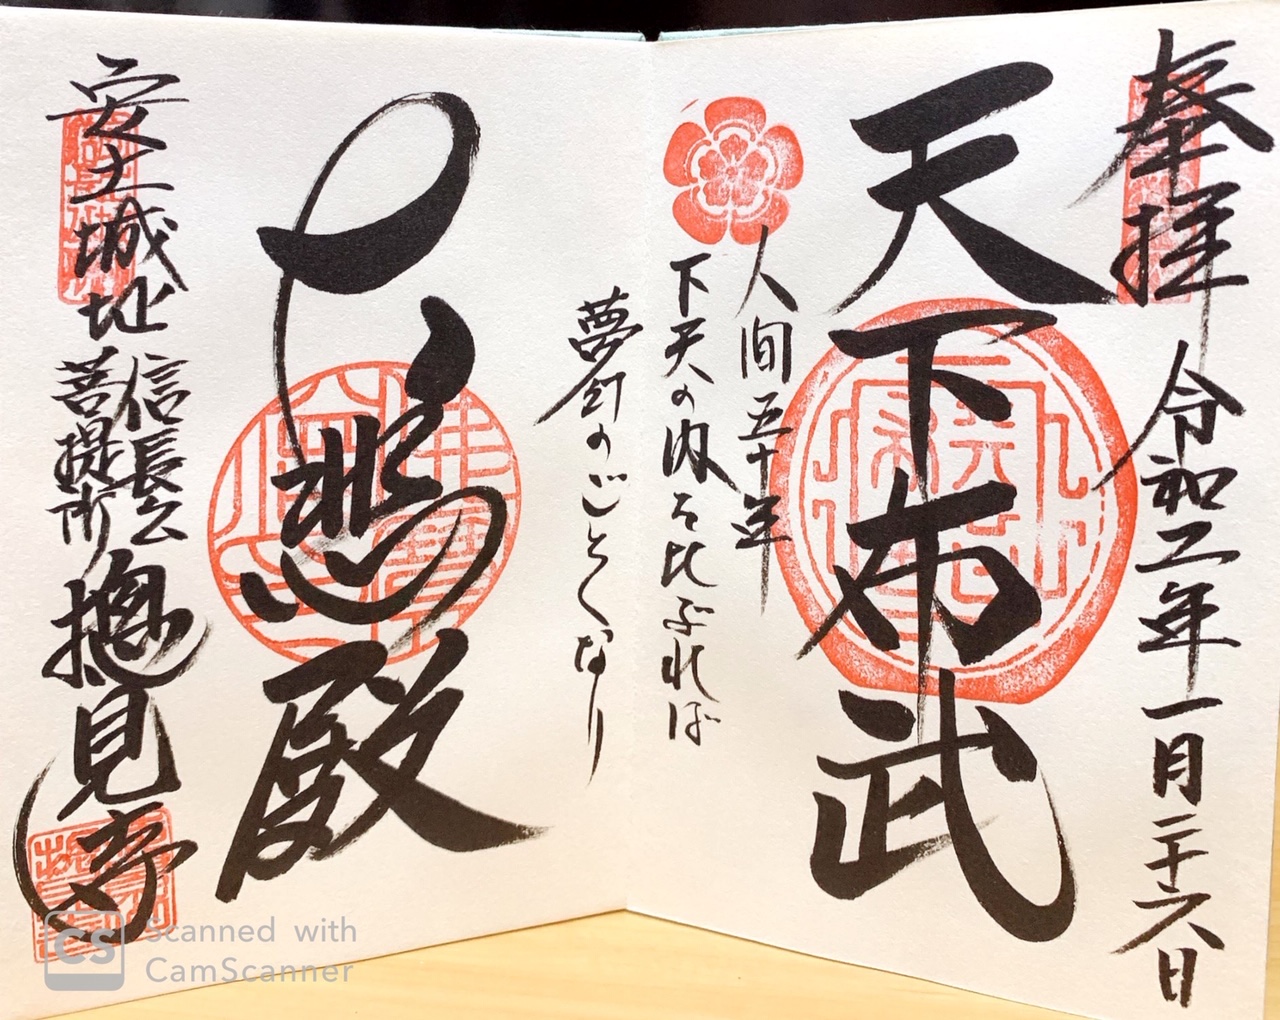 奉拝 令和二年一月二十六日
天下布武
人間五十年
下天の内を比ぶれば
夢幻のごとくなり
大悲殿
安土城址 信長公
菩提所
摠見寺
Scanned with
CamScanner
CS